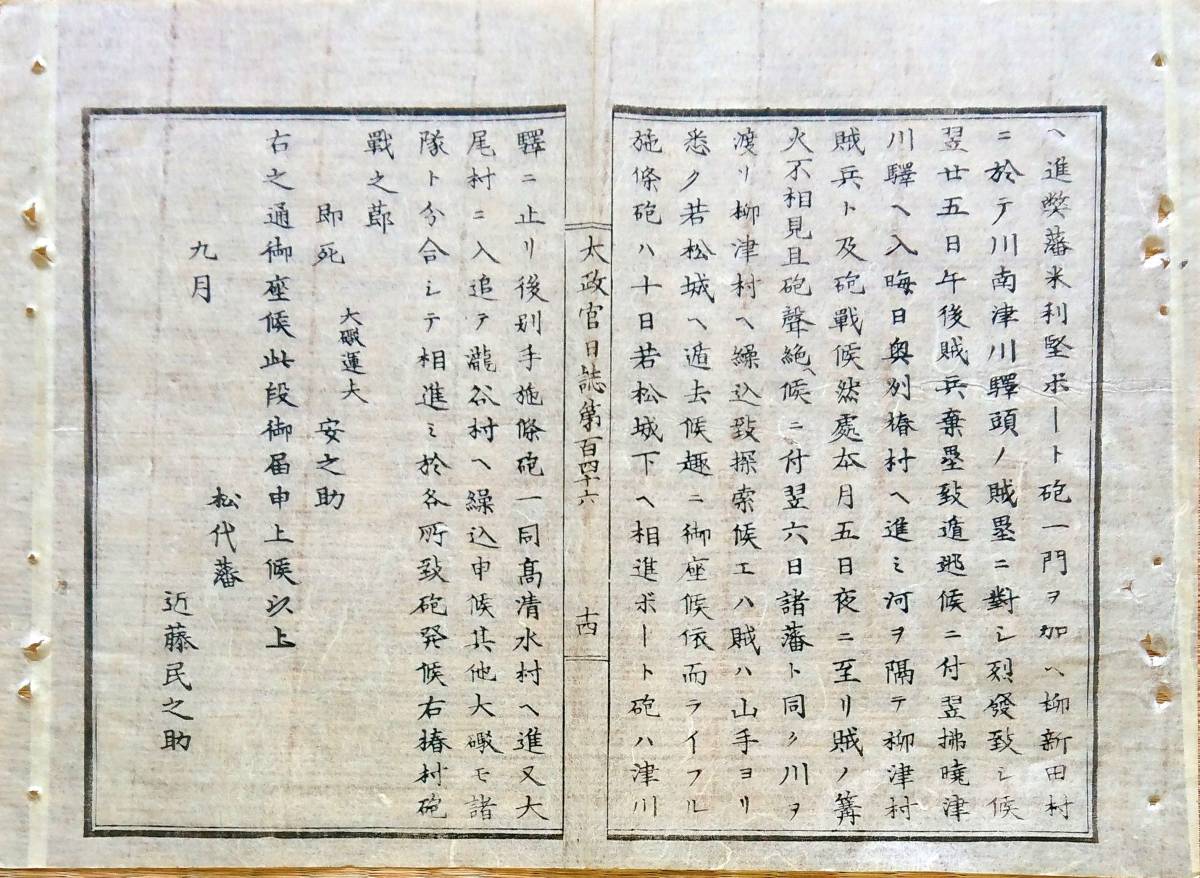 ヘ進弊藩米利堅ボート砲一門ヲ加ヘ柳新田村
ニ於テ川南津川驛頭ノ賊塁ニ對シ烈發致シ候
翌廿五日午後賊兵棄塁致遁逃候ニ付翌拂曉津
川驛ヘ入晦日奥列椿村ヘ進ミ河ヲ隔テ柳津村
賊兵ト及砲戰候然處本月五日夜ニ至リ賊ノ篝
火不相見且砲聲絶候ニ付翌六日諸藩ト同ク川ヲ
渡リ柳津村ヘ繰込致探索候エハ賊ハ山手ヨリ
悉ク若松城ヘ遁去候趣ニ御座候依而ライフル
施條砲ハ十日若松城下ヘ相進ボート砲ハ津川
太政官日誌第百四十六
十四
驛ニ止リ後別手施條砲一同髙清水村ヘ進又大
尾村ニ入追テ瀧谷村ヘ繰込申候其他大礟モ諸
隊ト分合シテ相進ミ於各所致砲発候右椿村砲
戰之節
即死
大礟運夫
安之助
右之通御座候此段御届申上候以上
九月
松代藩
近藤民之助